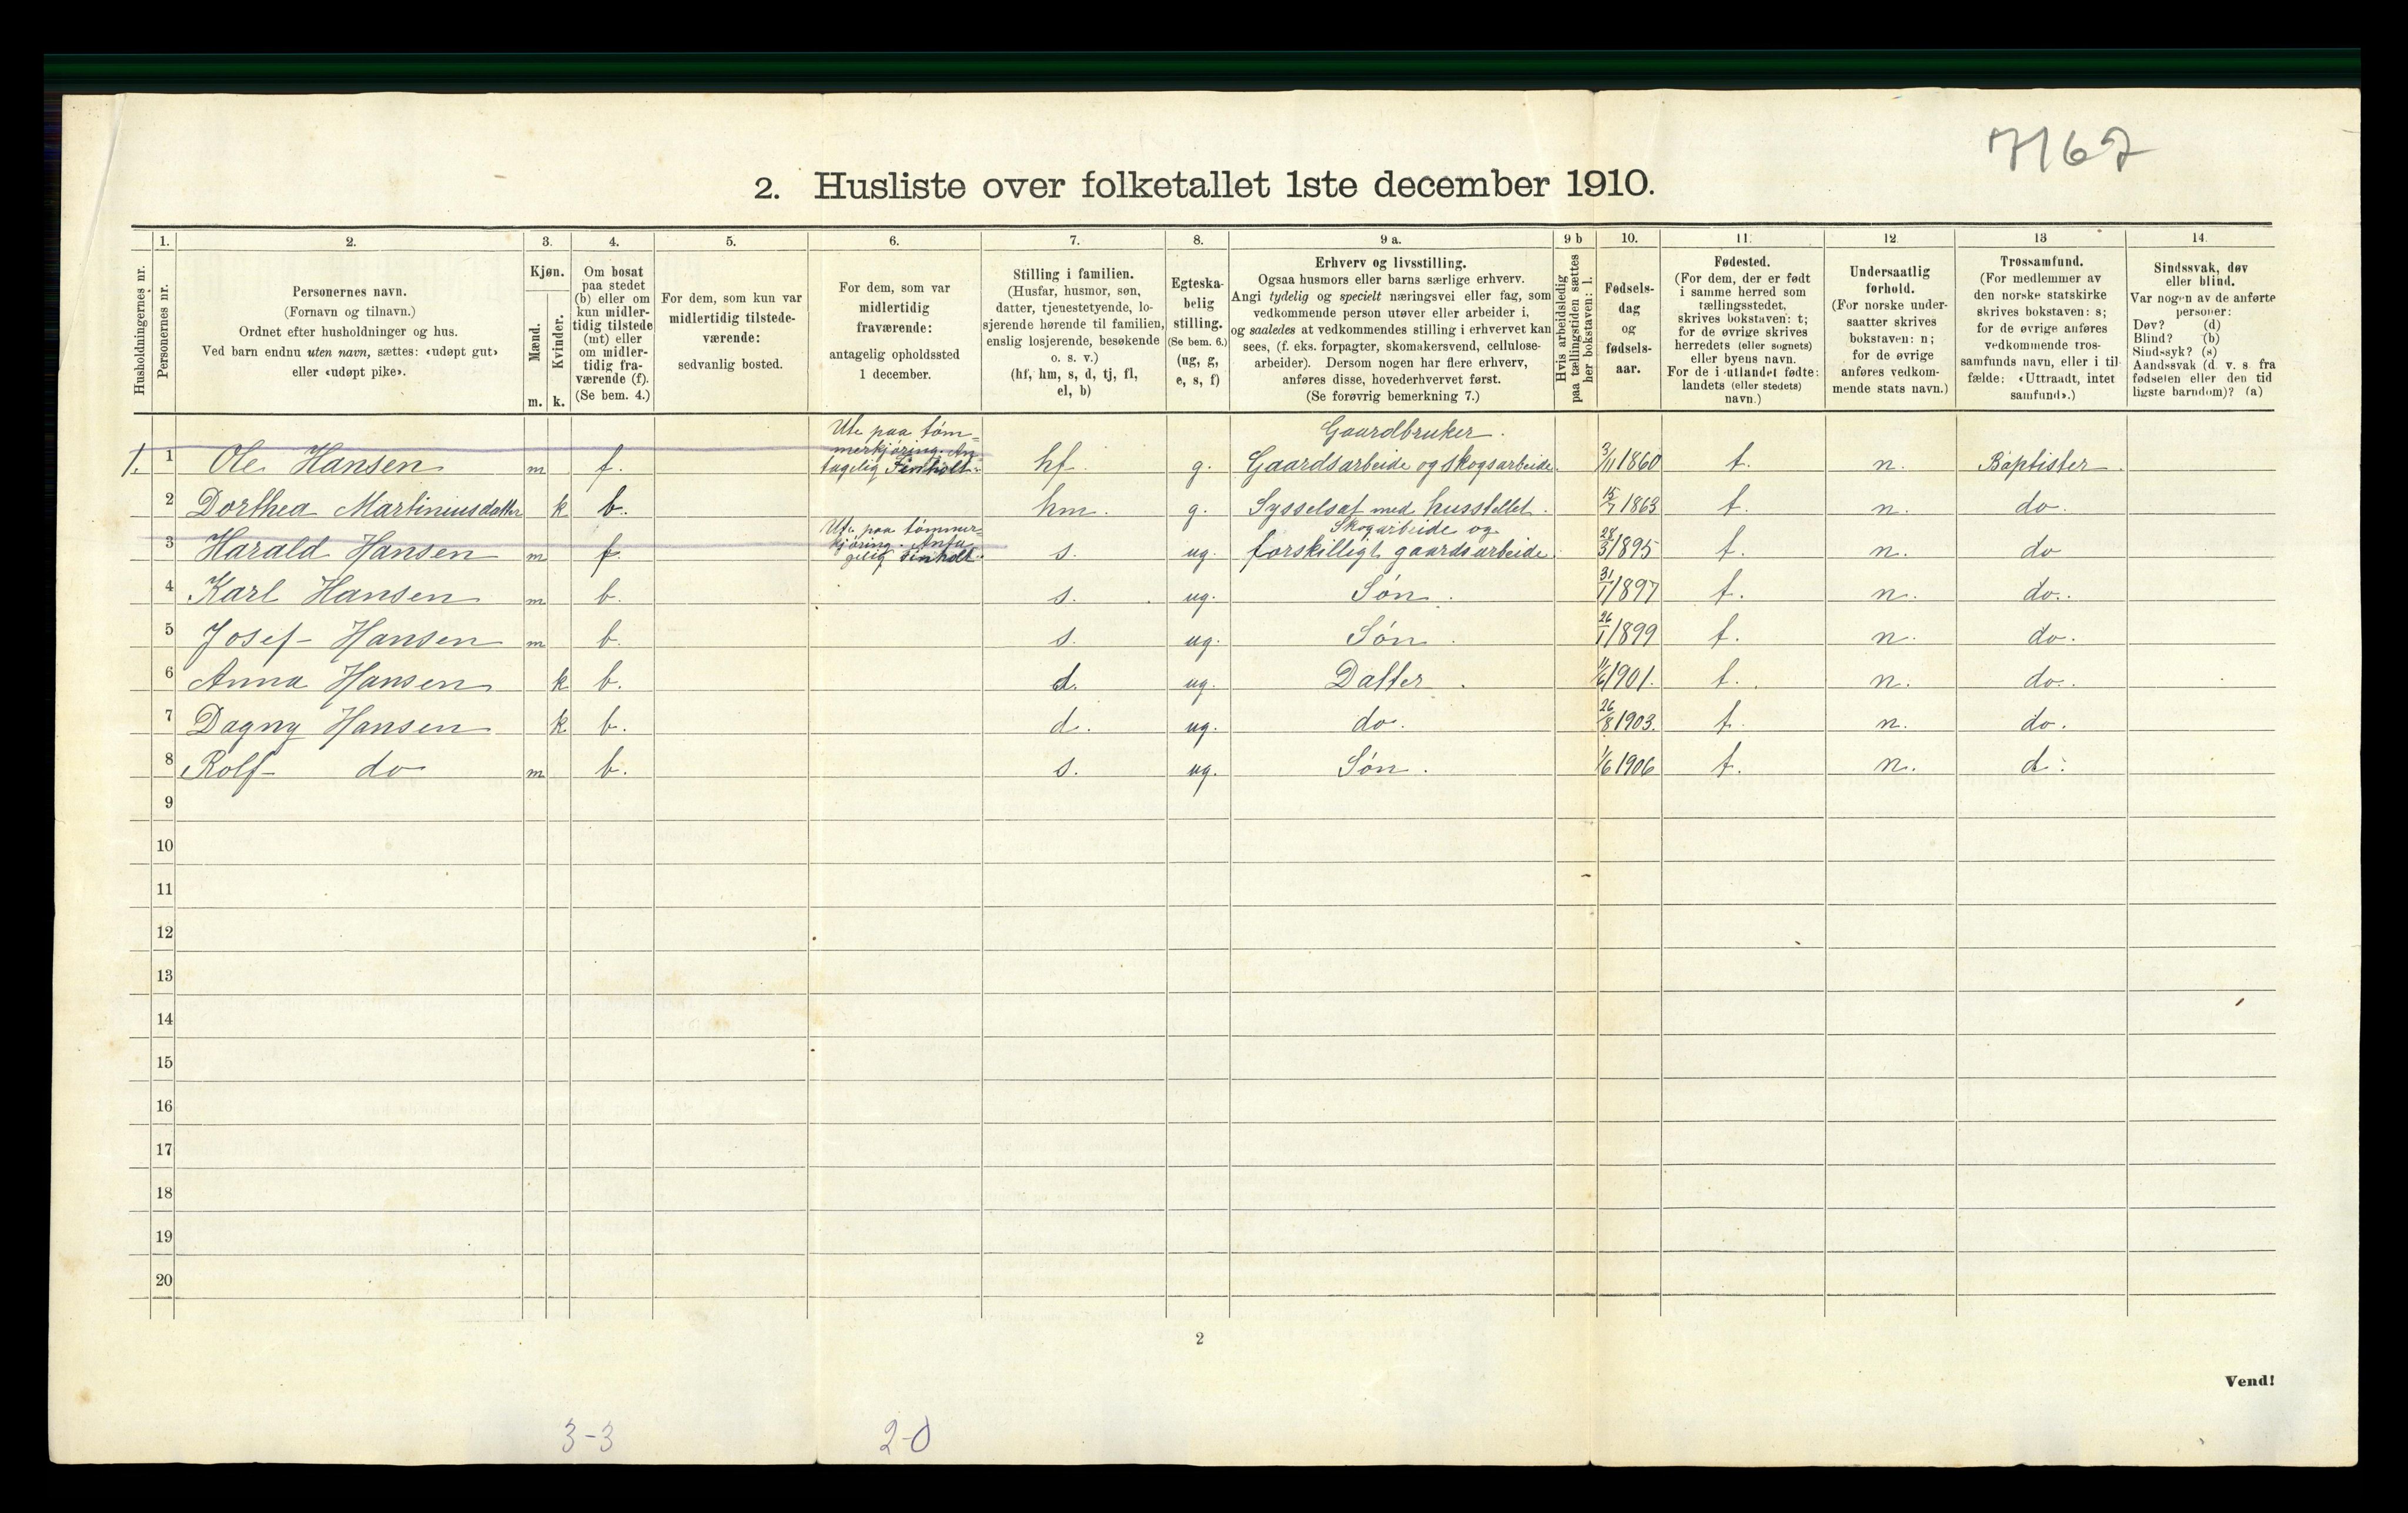 7167
2. Husliste over folketallet 1ste december 1910.
Husholdningernes nr.
1.
Personernes nr.
2.
Personernes navn.
(Fornavn og tilnavn.)
Ordnet efter husholdninger og hus.
Ved barn endnu uten navn, sættes: «udøpt gut»
eller «udøpt pike».
3.
Kjøn.
Mænd.
Kvinder.
m. k.
4.
Om bosat
paa stedet
(b) eller om
kun midler-
tidig tilstede
(mt) eller
om midler-
tidig fra-
værende (f).
(Se bem. 4.)
5.
For dem, som kun var
midlertidig tilstede-
værende:
sedvanlig bosted.
6.
For dem, som var
midlertidig
fraværende:
antagelig opholdssted
1 december.
7.
Stilling i familien.
(Husfar, husmor, søn,
datter, tjenestetyende, lo-
sjerende hørende til familien,
enslig losjerende, besøkende
o. s. v.)
(hf, hm, s, d, tj, fl,
el, b)
8.
Egteska-
belig
stilling.
(Se bem. 6.)
(ug, g,
e, s, f)
9 a.
Erhverv og livsstilling.
Ogsaa husmors eller barns særlige erhverv.
Angi tydelig og specielt næringsvei eller fag, som
vedkommende person utøver eller arbeider i,
og saaledes at vedkommendes stilling i erhvervet kan
sees, (f. eks. forpagter, skomakersvend, cellulose-
arbeider). Dersom nogen har flere erhverv,
anføres disse, hovederhvervet først.
(Se forøvrig bemerkning 7.)
9 b
Hvis arbeidsledig
paa tællingstiden sættes
her bokstaven: l.
10.
Fødsels-
dag
og
fødsels-
aar.
11.
Fødested.
(For dem, der er født
i samme herred som
tællingsstedet,
skrives bokstaven: t;
for de øvrige skrives
herredets (eller sognets)
eller byens navn.
For de i utlandet fødte:
landets (eller stedets)
navn.)
12
Undersaatlig
forhold.
(For norske under-
saatter skrives
bokstaven: n;
for de øvrige
anføres vedkom-
mende stats navn.)
13
Trossamfund.
(For medlemmer av
den norske statskirke
skrives bokstaven: s;
for de øvrige anføres
vedkommende tros-
samfunds navn, eller i til-
fælde: «Uttraadt, intet
samfund».)
14.
Sindssvak, døv
eller blind.
Var nogen av de anførte
personer:
Døv? (d)
Blind? (b)
Sindssyk? (s)
Aandssvak (d. v. s. fra
fødselen eller den tid
ligste barndom)? (a)
1. 1 Ole Hansen m f. Ute paa tøm= merkjøring. An tagelig Finholt. hf. g. Gaardbruker. Gaardsarbeide og skogsarbeide. 3/11 1860 t. n. Baptister
2 Dorthea Martiniusdatter k b. hm. g. Sysselsat med husstellet. 15/7 1863 t. n. do.
3 Harald Hansen m f. Ute paa tømmer= kjøring. Anta gelig Finholt. s. ug. Skogarbeide og forskilligt gaardsarbeide. 28/3 1895 t. n. do
4 Karl Hansen m b. s. ug. Søn. 31/1 1897 t. n. do.
5 Josef Hansen m b. s. ug. Søn. 26/1 1899 t. n. do.
6 Anna Hansen k b. d. ug. Datter. 11/6 1901. t. n. do.
7 Dagny Hansen k b. d. ug. do. 26/8 1903. t. n. do.
8 Rolf do m b. s. ug. Søn. 1/6 1906 t. n. d.
9
10
11
12
13
14
15
16
17
18
19
20
2
Vend!
3-3
2-0